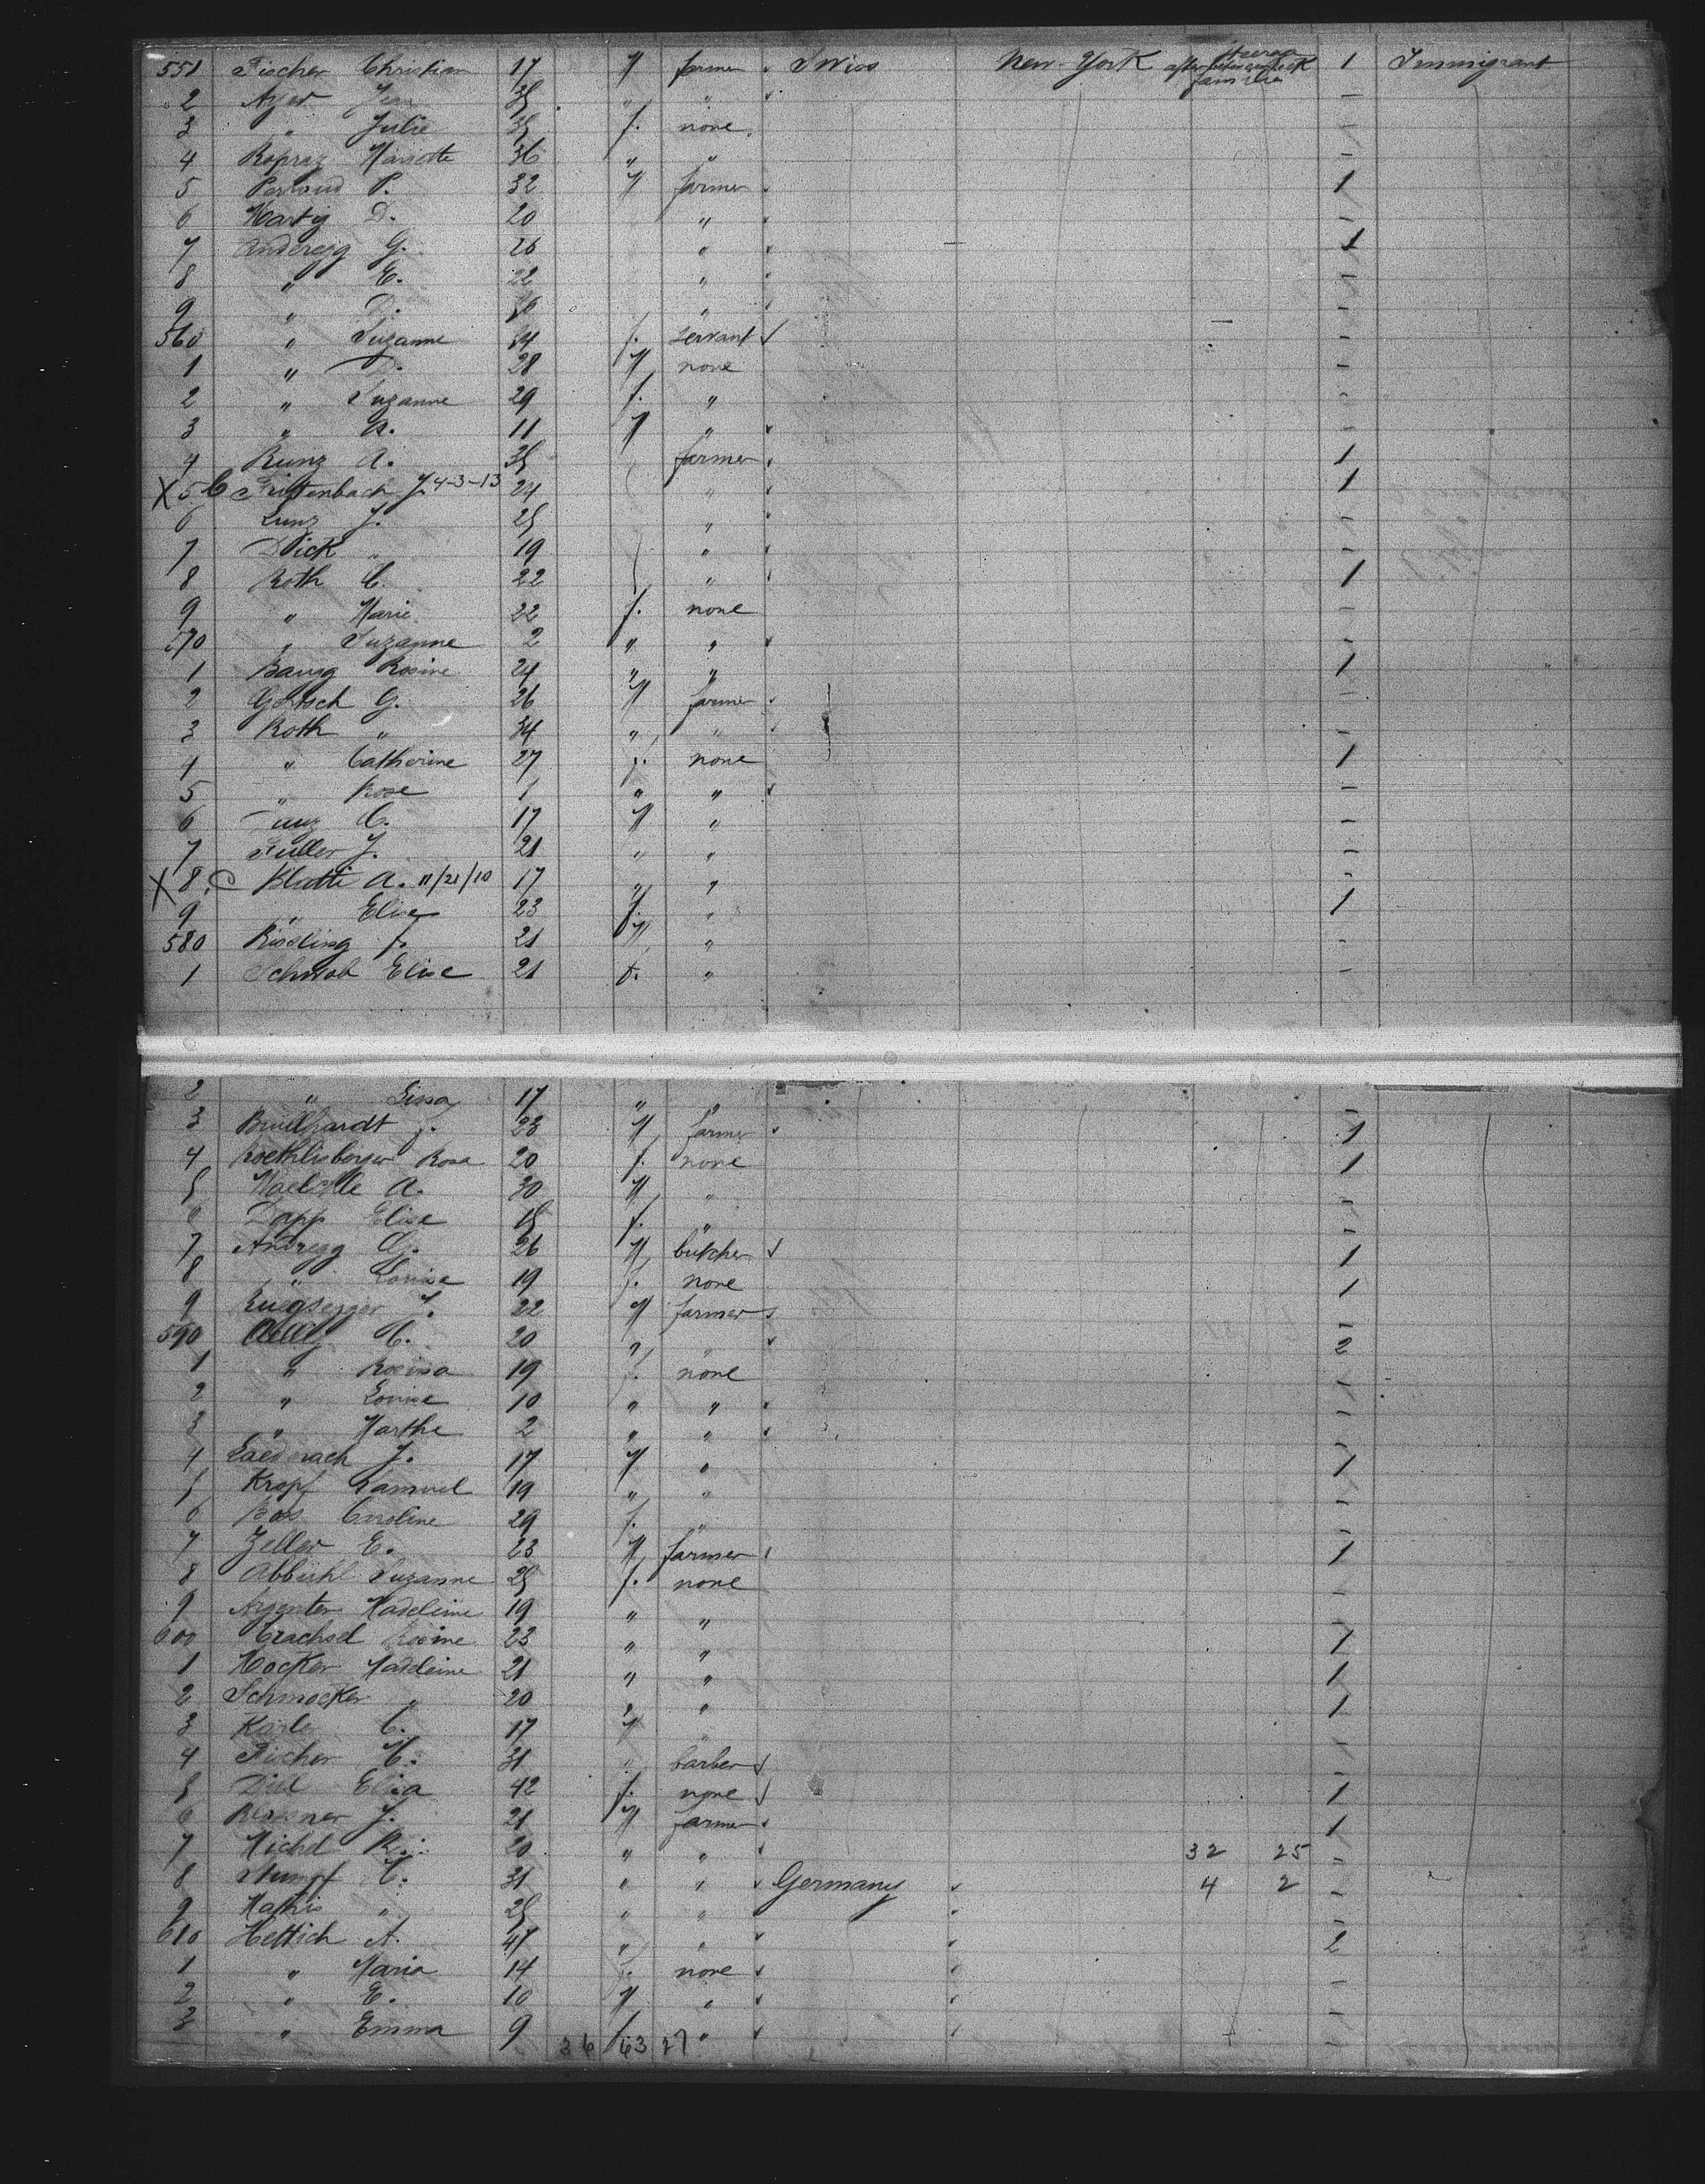 551 Fischer Christian 17 M farmer Swiss New-York Steerage after between deck families 1 Immigrant
2 Ayer Jean 35 " " -
3 " Julie 35 f. none -
4 Kopraz Mariette 36 " " -
5 Perroud P. 32 M farmer 1
6 D. 20 " -
7 Anderegg G. 26 " 1
8 " E. 22 " -
9 " D. " -
560 " Suzanne f. servant -
1 " D. 28 M none -
2 " Suzanne 29 f. " -
3 " A. 11 M " -
4 Kunz A. 35 farmer 1
X 5 C Frittenbach J. 4-3-13 24 " 1
6 Lunz J. 25 " -
7 Dick " 19 " -
8 Roth C. 22 " 1
9 " Marie 22 f. none -
570 " Suzanne 2 " " -
1 Rosine 24 " " 1
2 Gertsch G. 26 M farmer -
3 Roth " 34 " " -
4 " Catherine 27 f. none 1
5 " Rose 1 " " -
6 C. 17 M " -
7 Fuller J. 21 " " -
X 8 C A. 11/21/10 17 " "
9 " Elise 23 f. " 1
580 Kissling f. 21 M " -
1 Schwob Elise 21 f. " -
2 " Lissa 17 " " -
3 J. 23 M farmer 1
4 Roethlisberger Rosa 20 f. none 1
5 A. 30 M " -
Dapp Elise 15 f. " -
7 Andregg G. 26 M butcher 1
8 " Louise 19 f. none 1
9 Ruegsegger J. 22 M farmer -
590 C. 20 " " 2
1 " Rosina 19 f. none -
2 " Louise 10 " " -
3 " Marthe 2 " " -
4 Laedrach J. 17 M " 1
5 Kropf Samuel 19 " " -
6 Caroline 29 f. " -
7 Zeller E. 23 M farmer 1
8 Abbuhl Suzanne 25 f. none -
9 Madeleine 19 " " -
600 Trachsel Rosine 23 " " 1
1 Hocker Madeleine 21 " " 1
2 Schmocker " 20 " " 1
3 C. 17 M " -
4 Ficher C. 31 " barber -
5 Elisa 42 f. none 1
6 J. 21 M farmer 1
7 Michel R. 20 " " 32 25 -
8 Stumpf C. 31 " " Germany 4 2 -
9 Mathis " 25 " " -
610 Hettich A. 47 " " 2
1 " Maria 14 f. none -
2 " E. 10 M " -
3 " Emma 9 f. " -
36 63 27